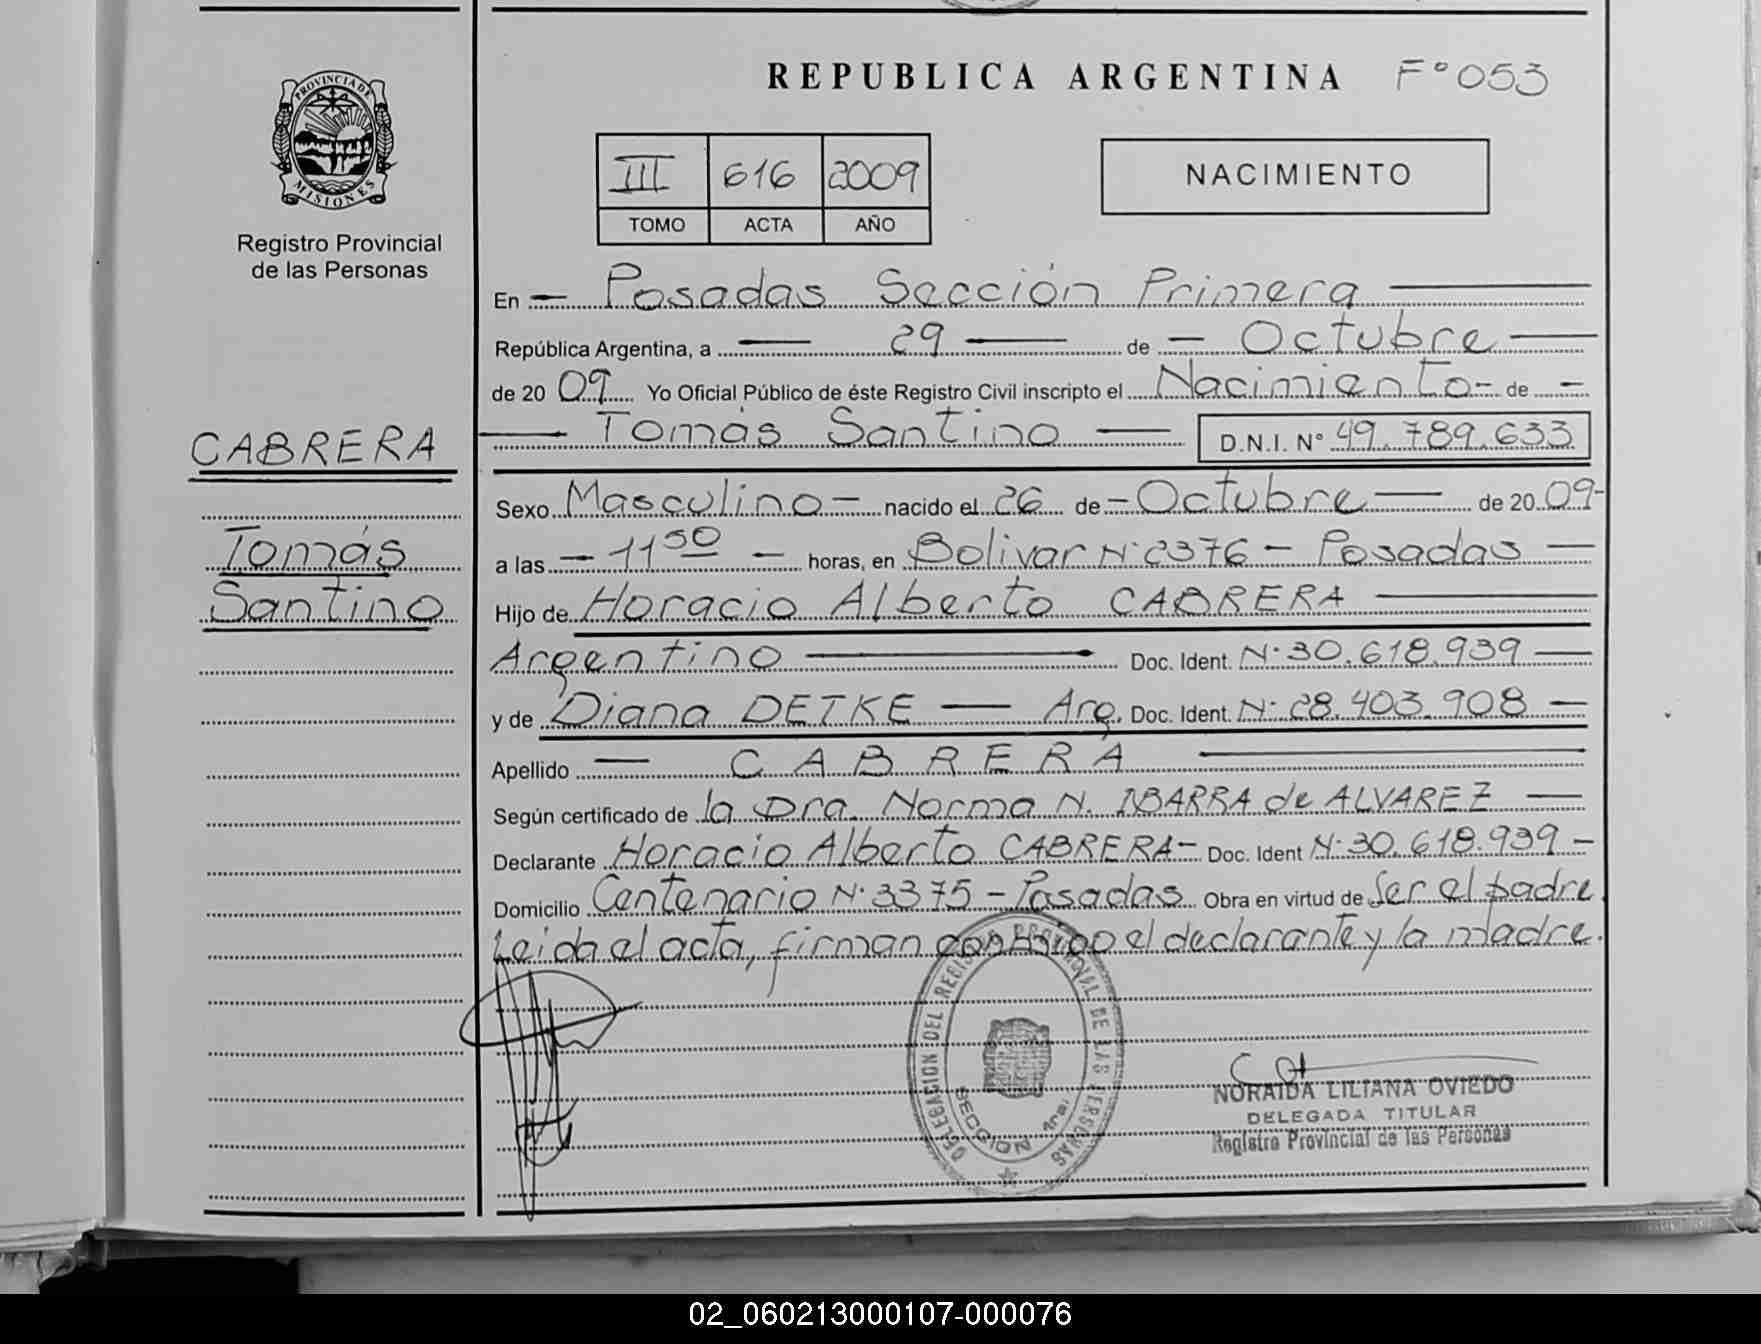 REPUBLICA ARGENTINA F° 053
PROVINCIA DE
MISIONES
Registro Provincial
de las Personas
III 616 2009
TOMO ACTA AÑO
NACIMIENTO
En – Posadas Sección Primera
República Argentina, a — 29 — de – Octubre —
de 20 09 Yo Oficial Público de éste Registro Civil inscripto el Nacimiento – de –
— Tomás Santino — D.N.I. N° 49.789.633
CABRERA
Tomás
Santino
Sexo Masculino – nacido el 26 de – Octubre — de 20 09-
a las – 11 50 – horas, en Bolivar N° 2376 – Posadas —
Hijo de Horacio Alberto CABRERA —
Argentino — Doc. Ident. N° 30.618.939 —
y de Diana DETKE — Arg. Doc. Ident. N° 28.403.908 —
Apellido — CABRERA —
Según certificado de la Dra. Norma N. IBARRA de ALVAREZ —
Declarante Horacio Alberto CABRERA – Doc. Ident N° 30.618.939 –
Domicilio Centenario N° 3375 – Posadas Obra en virtud de Ser el padre.
Leida el acta, firman conmigo el declarante y la madre.
DELEGACION DEL REGISTRO PROVINCIAL DE LAS PERSONAS
SECCION 1ra.
NORAIDA LILIANA OVIEDO
DELEGADA TITULAR
Registro Provincial de las Personas
02_060213000107-000076